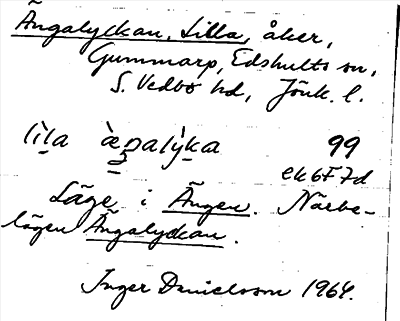 Ängalyckan, Lilla, åker,
Gummarp, Edshults sn,
S. Vedbo hd, Jönk. l.
lìla àŋalỳka 99
ek 6F7d
Läge i Ängen. Närbe-
lägen Ängalyckan.
Inger Danielsson 1964.